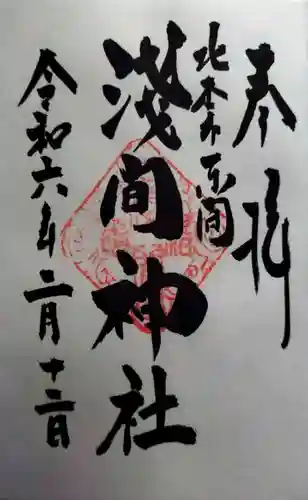 奉拝
北本市東間
浅間神社
令和六年二月十二日